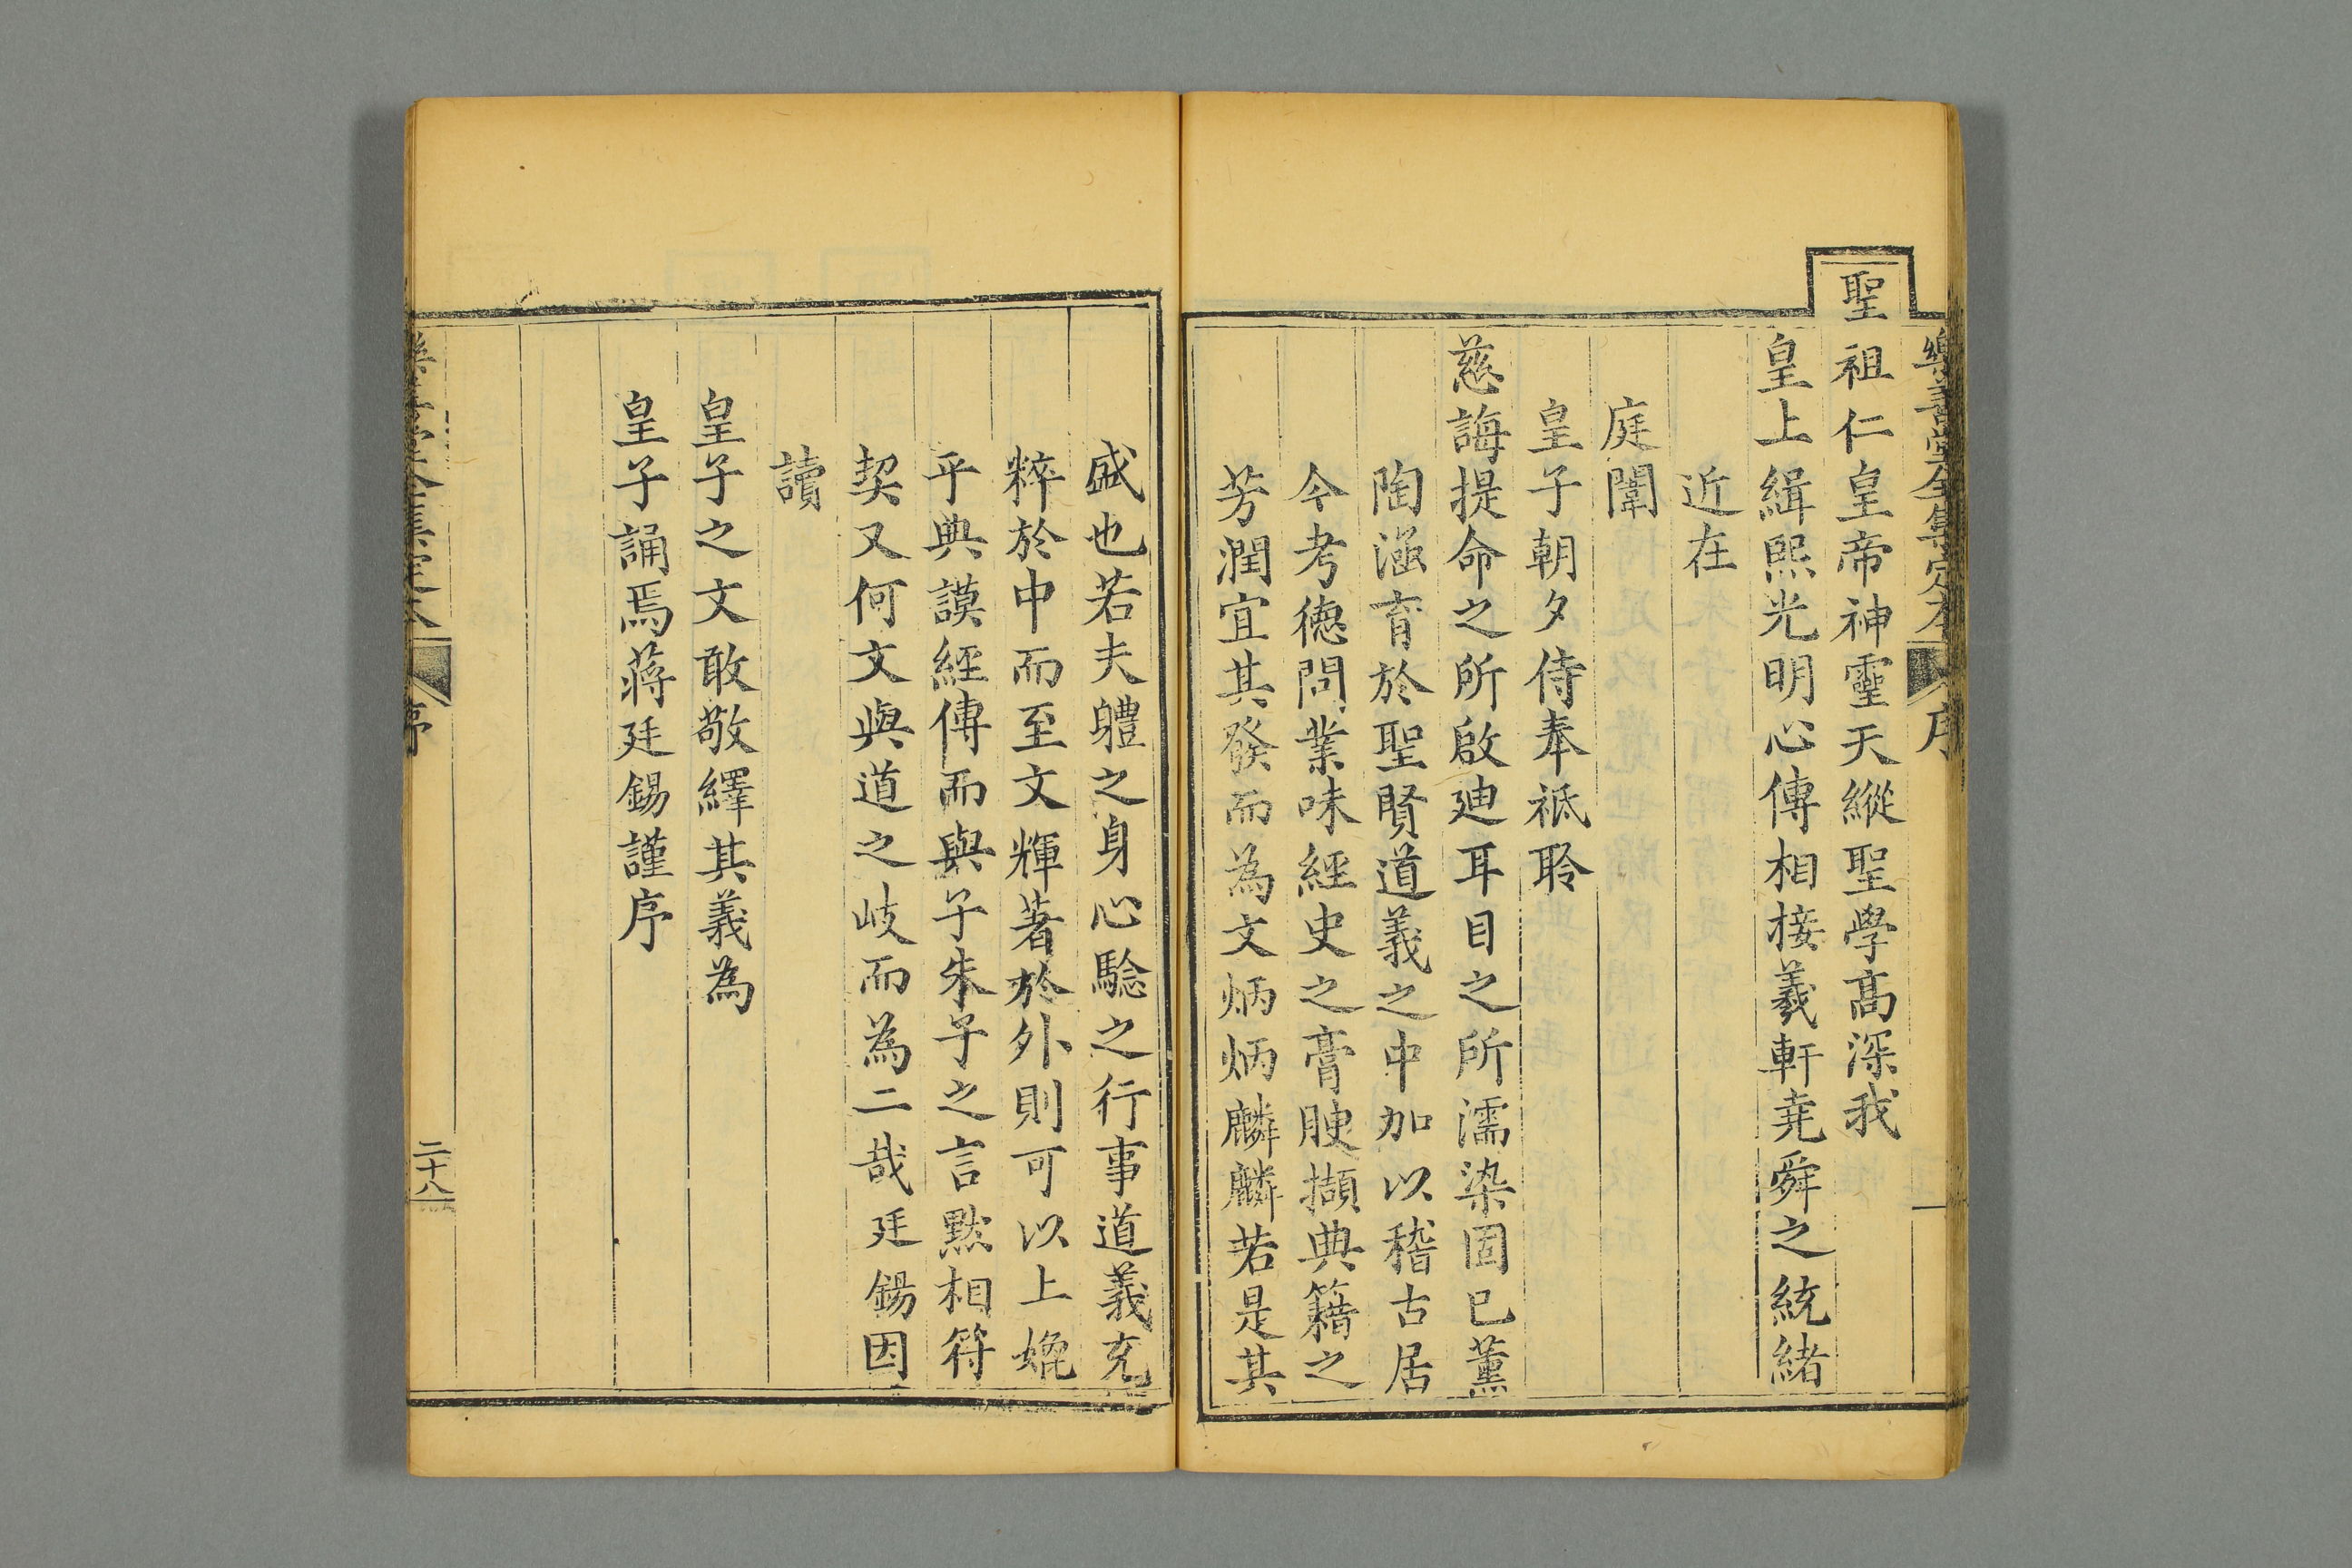 樂善堂全集定本 序
聖祖仁皇帝神靈天縱聖學高深我
皇上緝熙光明心傳相接羲軒堯舜之統緒
近在
庭闈
皇子朝夕侍奉祗聆
慈誨提命之所啟廸耳目之所濡染固已薰
陶涵育於聖賢道義之中加以稽古居
今考德問業味經史之膏腴擷典籍之
芳潤宜其發而為文炳炳麟麟若是其
盛也若夫體之身心驗之行事道義充
粹於中而至文輝著於外則可以上媲
乎典謨經傳而與子朱子之言默相符
契又何文與道之岐而為二哉廷錫因
讀
皇子之文敢敬繹其義為
皇子誦焉蔣廷錫謹序
樂善堂全集定本 序 二十八